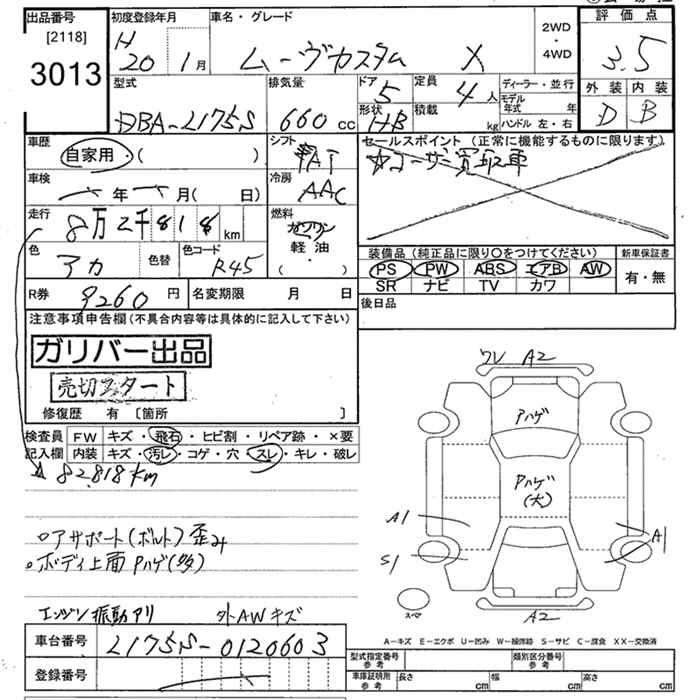 出品番号
[2118]
3013
初度登録年月
H
20 1月
車名・グレード
ムーヴカスタム X
2WD
・
4WD
評価点
3.5
外装 内装
D B
型式
DBA-L175S
排気量
660 cc
ドア
5
定員
4人
形状
HB
積載
kg
ディーラー・並行
モデル年式 年
ハンドル 左・右
車歴
自家用・( )
シフト
AT
車検
年 月( 日)
冷房
AAC
走行
8万2千818km
燃料
ガソリン
軽油
( ・ )
色
アカ
色替
色コード
R45
R券
9260円
名変期限 月 日
セールスポイント(正常に機能するものに限ります)
☆ユーザー買取車
装備品(純正品に限り〇をつけてください)
PS PW ABS エアB AW
SR ナビ TV カワ
新車保証書
有・無
後日品
注意事項申告欄(不具合内容等は具体的に記入して下さい)
ガリバー出品
売切スタート
修復歴 有 〔箇所 〕
検査員
記入欄
FW キズ・飛石・ヒビ割・リペア跡・×要
内装 キズ・汚レ・コゲ・穴・スレ・キレ・破レ
☆82,818km
○アサポート(ボルト)歪み
○ボディ上面Pハゲ(多)
エンジン振動アリ 外AWキズ
ワレ A2
Pハゲ
Pハゲ
(大)
A1
S1
A1
A2
スペア
A-キズ E-エクボ U-凹み W-補修跡 S-サビ C-腐食 XX-交換済
車台番号
L175S-0120603
登録番号
型式指定番号
参考
類別区分番号
参考
車庫証明用
参考
長さ cm
幅 cm
高さ cm